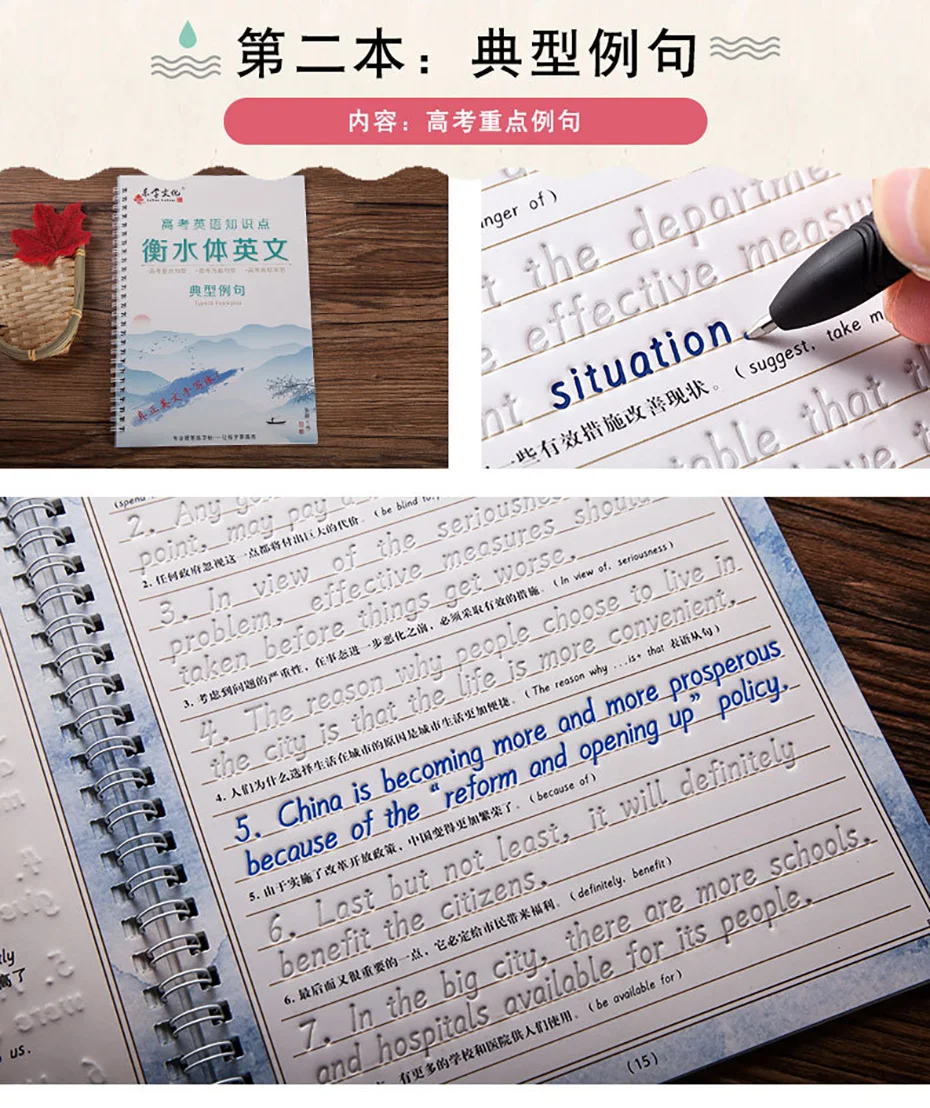 第二本：典型例句
内容：高考重点例句
东字文化
高考英语知识点
衡水体英文
典型例句
真正英文手写体
anger of)
t the departme
effective measu
situation
一些有效措施改善现状。(suggest, take m
table that t
2. Any go
point, may pay a
2. 任何政府忽视这一点都将付出巨大的代价。(be blind to,
3. In view of the seriousness
problem, effective measures should
taken before things get worse.
3. 考虑到问题的严重性，在事态进一步恶化之前，必须采取有效的措施。(In view of, seriousness)
4. The reason why people choose to live in
the city is that the life is more convenient.
4. 人们为什么选择生活在城市的原因是城市生活更加便捷。(The reason why ...is+ that 表语从句)
5. China is becoming more and more prosperous
because of the “reform and opening up” policy.
5. 由于实施了改革开放政策，中国变得更加繁荣了。(because of)
6. Last but not least, it will definitely
benefit the citizens.
6. 最后而又很重要的一点，它必定给市民带来福利。(definitely, benefit)
7. In the big city, there are more schools,
and hospitals available for its people.
有更多的学校和医院供人们使用。(be available for)
(15)
us.